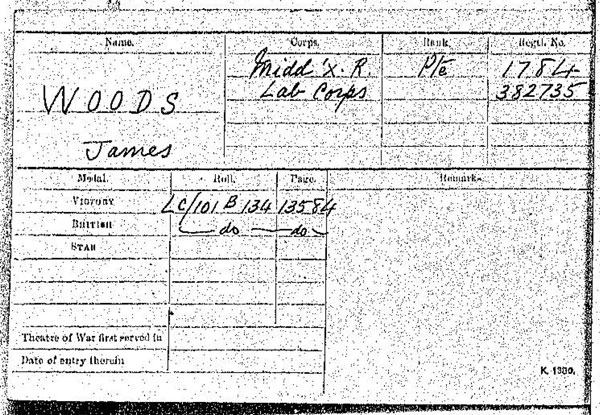 Name. Corps. Rank. Regtl. No.
Midd'x. R. P/e 1784
WOODS Lab Corps 382735
James
Medal. Roll. Page. Remarks.
VICTORY LC/101 B 134 13584
BRITISH do do
STAR
Theatre of War first served in
Date of entry therein
K. 1380.